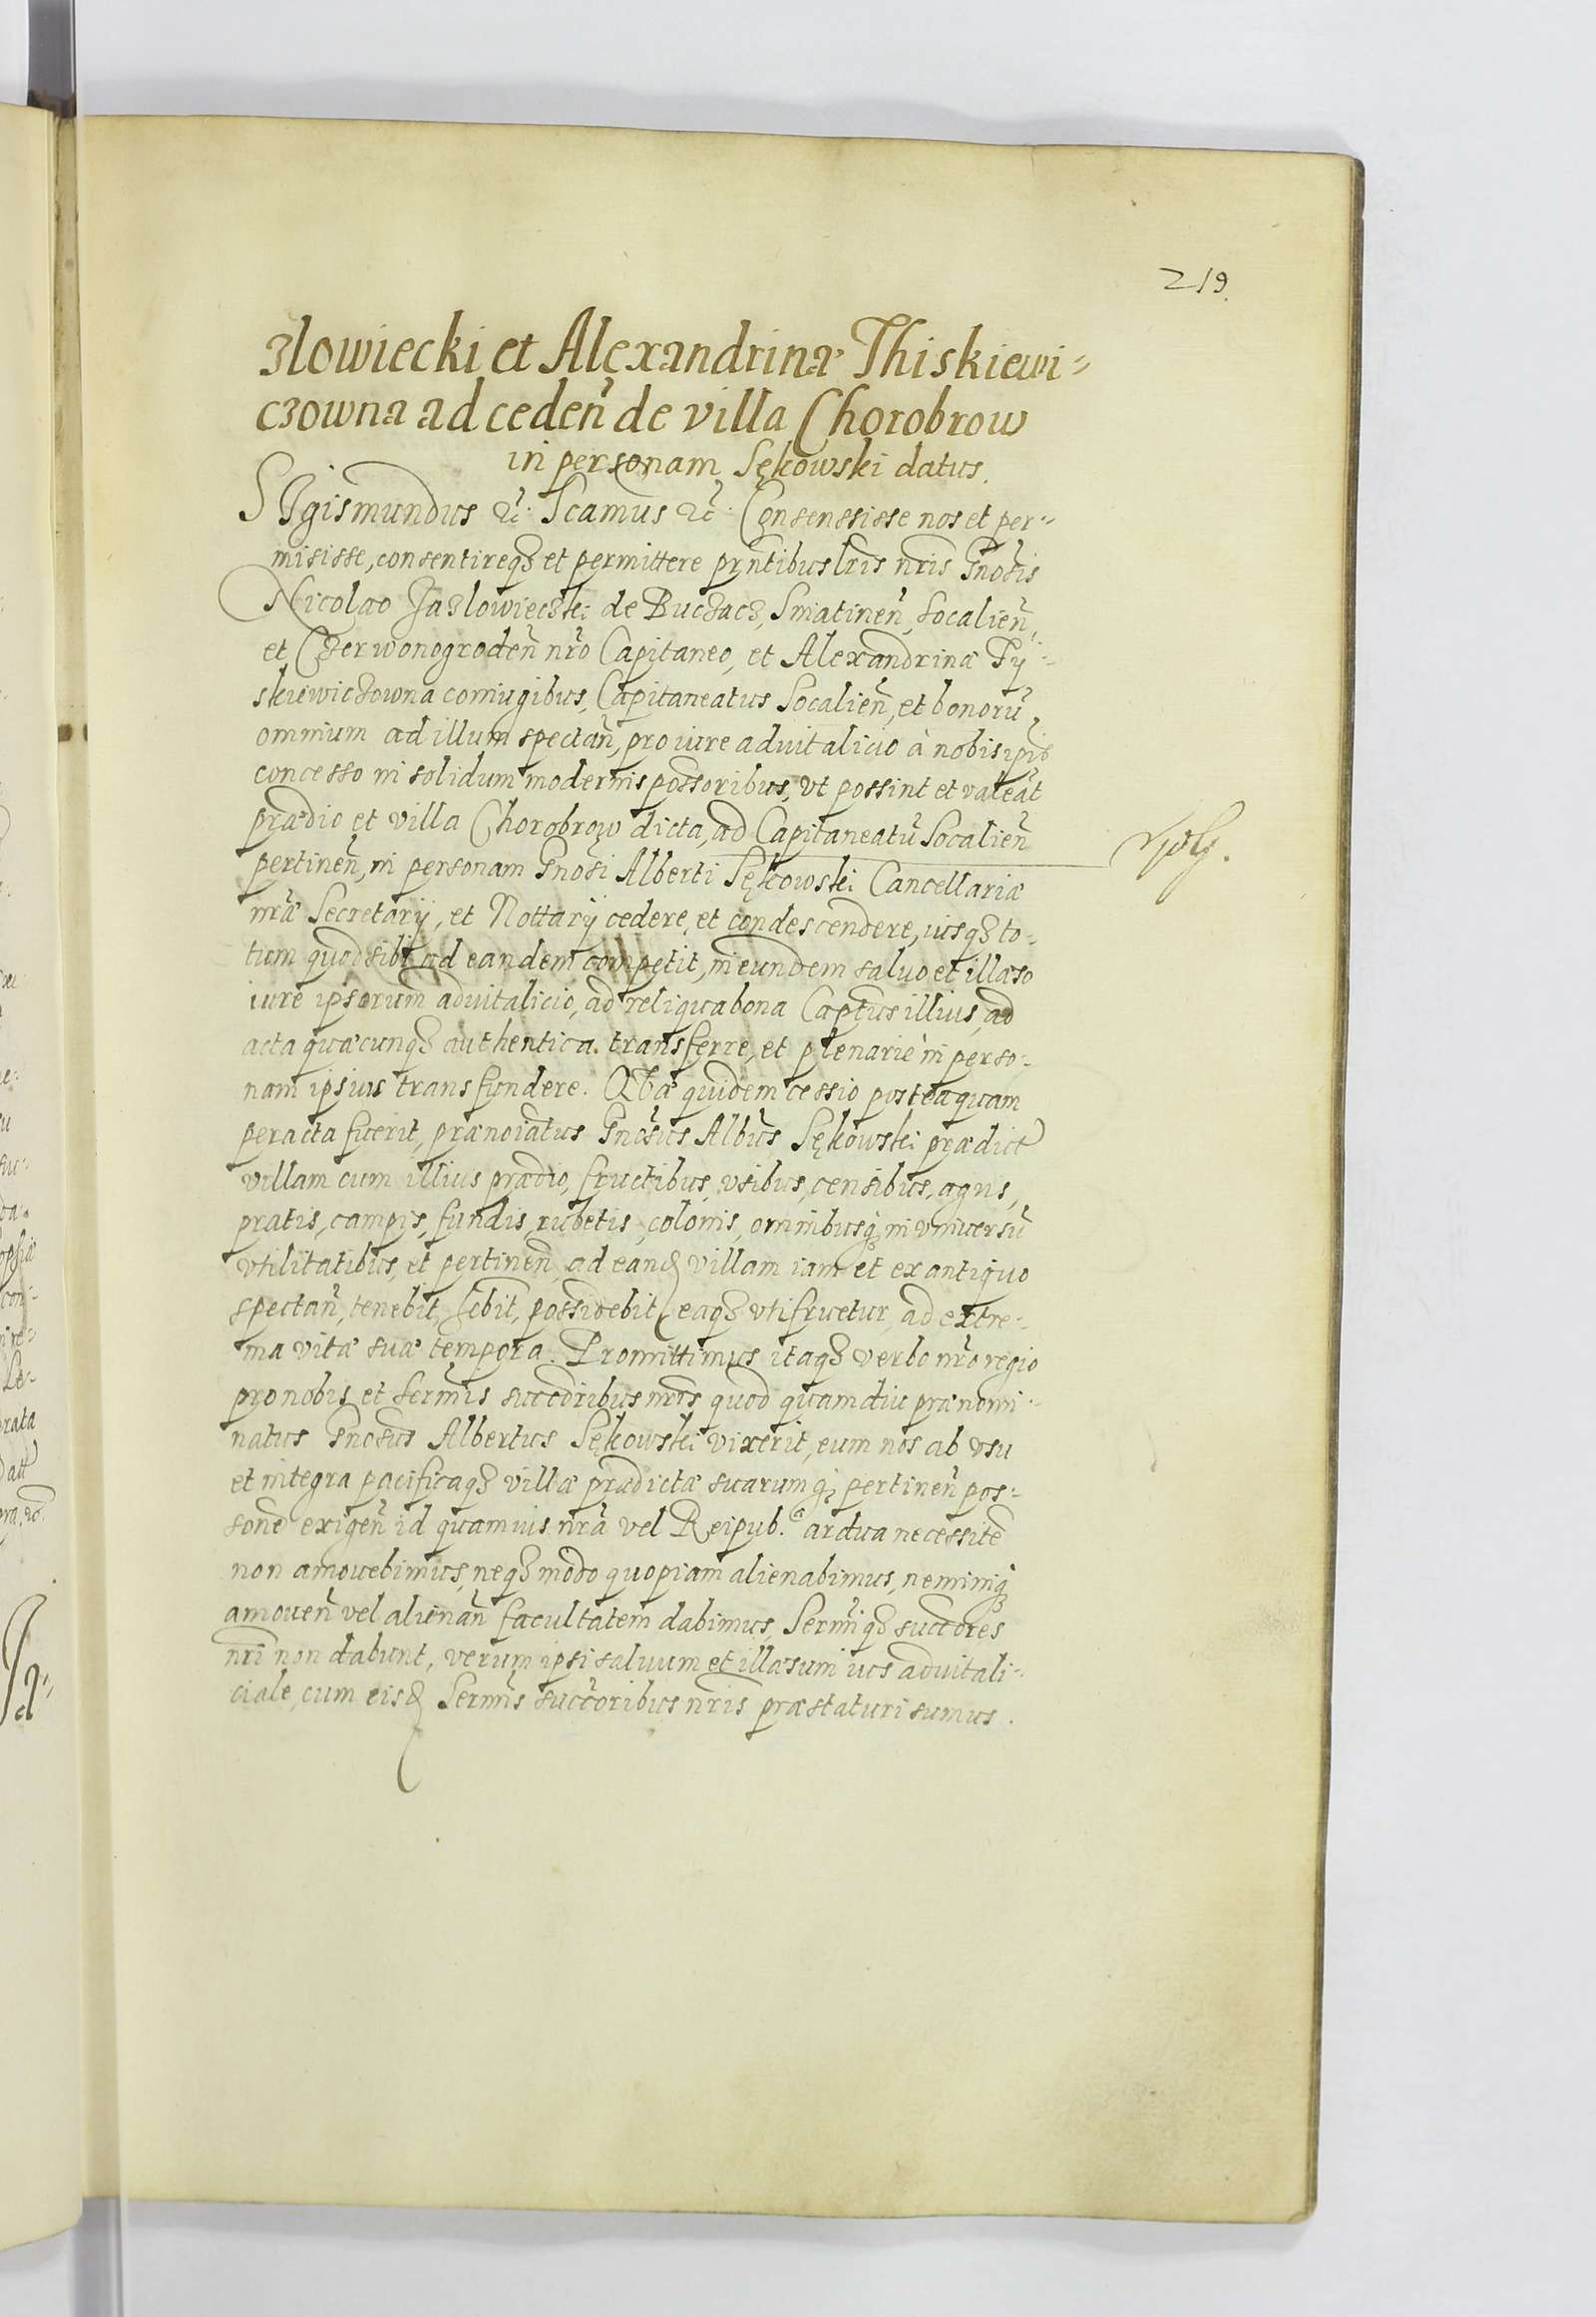 219.
zlowiecki et Alexandrinæ Thiskiewi-
czowna ad ceden̄ de villa Chorobrow
in personam Sękowski datus.
SIgismundus &c. Scamus &c. Consenssisse nos et per-
misisse, consentireqz et permittere pñtibus lr̄is nr̄is Gnosis
Nicolao Jazlowieczki de Buczacz, Sniatinen̄, Socalien̄,
et Czerwonogroden̄ nr̄o Capitaneo, et Alexandrinæ Ty-
skiewiczowna coniugibus, Capitaneatus Socalien̄, et bonorū
omnium ad illum spectan̄, pro iure aduitalicio à nobis ip̄is
concesso in solidum modernis poss̄oribus, vt possint et valeāt
prædio et villa Chorobrow dicta, ad Capitaneatū Socalien̄
pertinen̄, in personam Gnosi Alberti Sękowski Cancellariæ
nr̄æ Secretarij, et Nottarij cedere, et condescendere, iusqz to-
tum quod sibi ad eandem competit, in eundem saluo et illæso
iure ipsorum aduitalicio, ad reliqua bona Capt̄us illius, ad
acta quæcunqz authentica. transferre, et plenariè in perso-
nam ipsius transfundere. Quæ quidem cessio posteaquam
peracta fuerit, prænoīatus Gnosus Alb̄us Sękowski prædict
villam cum illius prædio, fructibus, vsibus, censibus, agris,
pratis, campis, fundis, rubetis, colonis, omnibusqz in vniuersū
vtilitatibus, et pertinen̄, ad eand villam iam et ex antiquo
spectan̄, tenebit, hēbit, possidebit, eaqz vtifruetur, ad extre-
ma vitæ suæ tempora. Promittimus itaqz verbo nr̄o regio
pro nobis et Serm̄is succōribus nr̄is, quod quamdiu prænomi-
natus Gnosus Albertus Sękowski vixerit, eum nos ab vsu
et integra pacificaqz villæ prædictæ suarumqz pertinen̄ pos-
sone exigen̄ id quamuis nr̄a vel Reipub.ᵃ ardua necessitē
non amouebimus, neqz modo quopiam alienabimus, neminiqz
amouen̄ vel alienan̄ facultatem dabimus, Serm̄iqz succōres
nr̄i non dabunt, verum ipsi saluum et illæsum ius aduitali-
ciale, cum eisd Serm̄is succ̄oribus nr̄is præstaturi sumus.